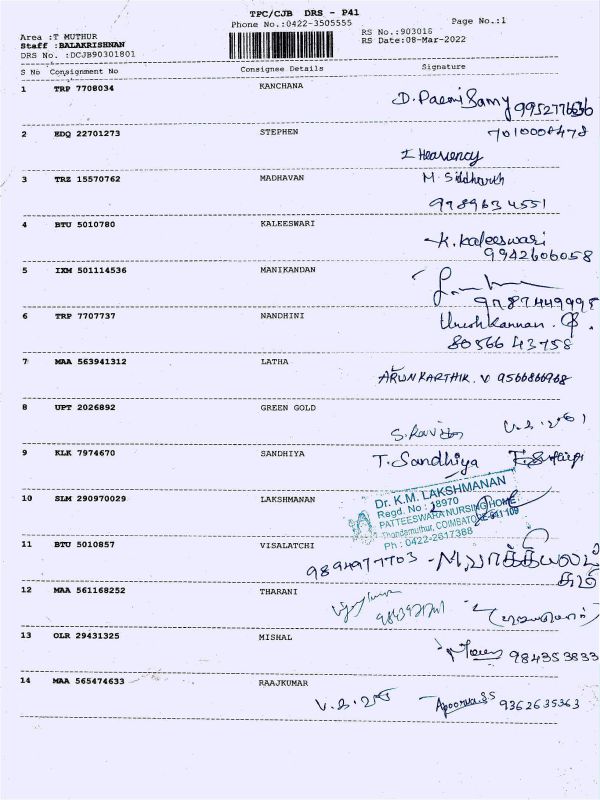 TPC/CJB DRS - P41
Phone No.:0422-3505555
Page No.:1
Area :T MUTHUR
RS No.:903016
Staff :BALAKRISHNAN
RS Date:08-Mar-2022
DRS No. :DCJB90301801
S No Consignment No Consignee Details Signature
1 TRP 7708034 KANCHANA
2 EDQ 22701273 STEPHEN
7010008478
3 TRZ 15570762 MADHAVAN
M. Siddharth
9789634551
4 BTU 5010780 KALEESWARI
K. Kaleeswari
9942606058
5 IXM 501114536 MANIKANDAN
6 TRP 7707737 NANDHINI
80566 43758
7 MAA 563941312 LATHA
ARUN KARTHIK. V 9566866968
8 UPT 2026892 GREEN GOLD
9 KLK 7974670 SANDHIYA
T. Sandhiya
10 SLM 290970029 LAKSHMANAN
Dr. K.M. LAKSHMANAN
PATTEESWARA NURSING HOME
Thondamuthur, COIMBATORE-641 109
Ph : 0422-2617388
11 BTU 5010857 VISALATCHI
9894977703
12 MAA 561168252 THARANI
13 OLR 29431325 MISHAL
984353833
14 MAA 565474633 RAAJKUMAR
Apoorva.S.S 9362635363